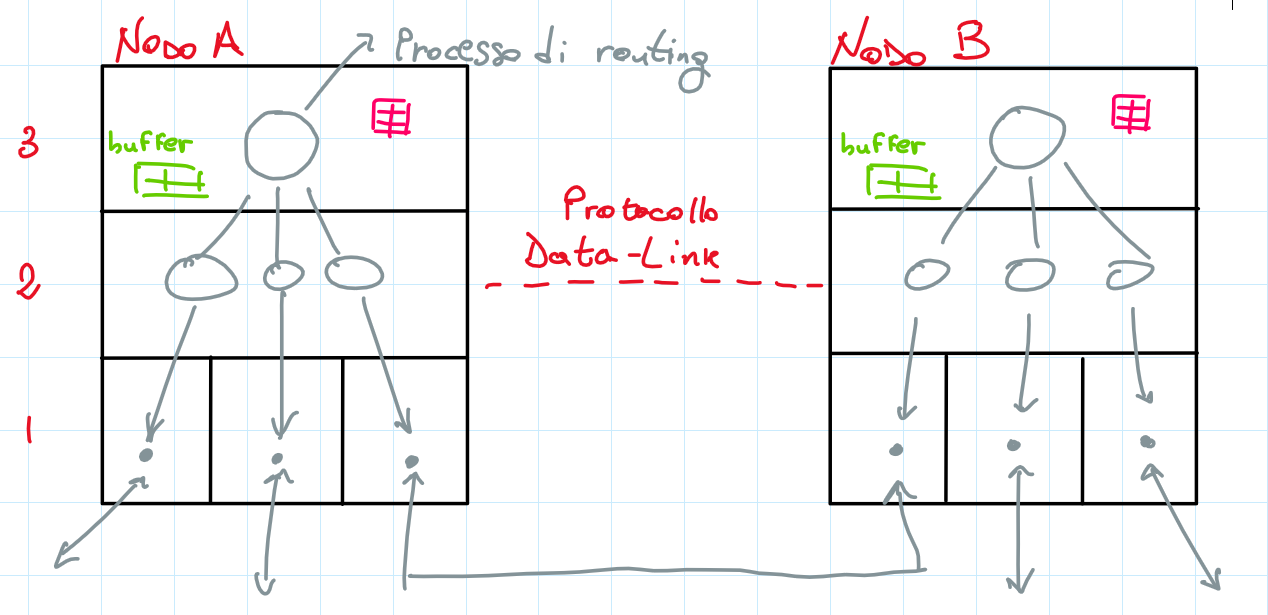 Nodo A
Processo di routing
Nodo B
3
buffer
buffer
Protocollo
Data-Link
2
1